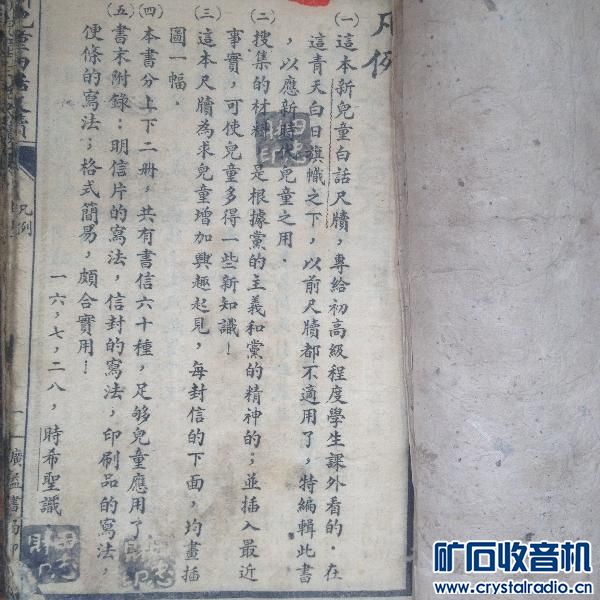 凡例
(一)這本新兒童白話尺牘，專給初高級程度學生課外看的．在
這青天白日旗幟之下，以前尺牘都不適用了，特編輯此書
，以應新時代兒童之用．
(二)搜集的材料是根據黨的主義和黨的精神的；並插入最近
事實，可使兒童多得一些新知識！
(三)這本尺牘為求兒童增加興趣起見，每封信的下面，均畫插
圖一幅．
(四)本書分上下二册，共有書信六十種，足够兒童應用了
(五)書末附錄：明信片的寫法，信封的寫法，印刷品的寫法，
便條的寫法；格式簡易，頗合實用！
一六，七，二八，時希聖識
兒童白話尺牘
凡例
一
廣益書局印
田忠財印
田忠財印
田忠財印
矿石收音机
www.crystalradio.cn